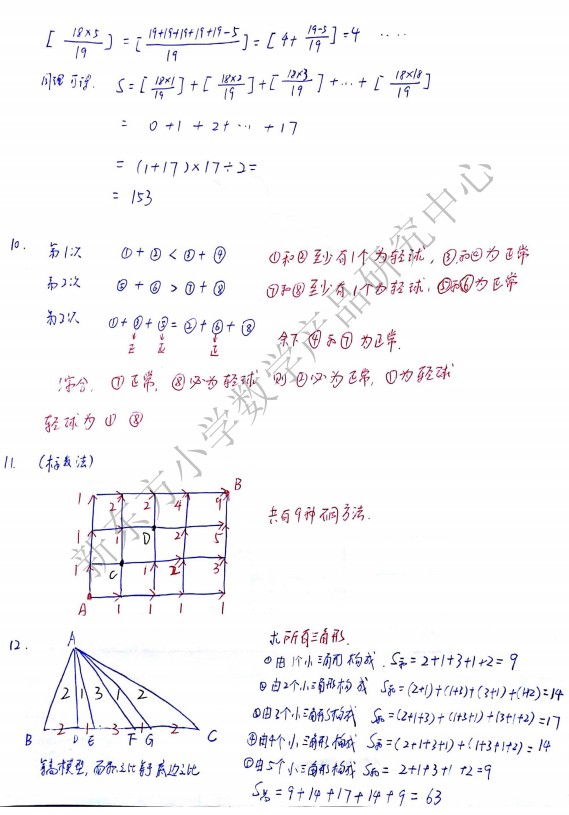 [ 18×5 / 19 ] = [ 19+19+19+19+19-5 / 19 ] = [ 4 + 19-5 / 19 ] = 4 ····
同理可得. S = [ 18×1 / 19 ] + [ 18×2 / 19 ] + [ 18×3 / 19 ] + ··· + [ 18×18 / 19 ]
= 0 + 1 + 2 + ··· + 17
= (1+17)×17÷2=
= 153
10. 第1次 ①+②<③+④ ①和②至少有1个为轻球, ③和④为正常
第2次 ⑤+⑥>⑦+⑧ ⑦和⑧至少有1个为轻球, ⑤和⑥为正常
第3次 ①+③+⑤=②+⑥+⑧ 余下④和⑦为正常.
正 正 正
综合. ⑦正常, ⑧必为轻球 则②必为正常, ①为轻球
轻球为① ⑧
11. (标数法)
B
1 2 2 4 9
1 1 D 2 5
共有9种不同方法.
1 C 1 2 3
A 1 1 1 1
12. A
求所有三角形.
①由1个小三角形构成. S和=2+1+3+1+2=9
②由2个小三角形构成 S和=(2+1)+(1+3)+(3+1)+(1+2)=14
2 1 3 1 2
③由3个小三角形构成 S和=(2+1+3)+(1+3+1)+(3+1+2)=17
2 1 3 1 2
B D E F G C
④由4个小三角形构成 S和=(2+1+3+1)+(1+3+1+2)=14
等高模型, 面积之比等于底边之比
⑤由5个小三角形构成 S和=2+1+3+1+2=9
S总=9+14+17+14+9=63
新东方小学数学产品研究中心